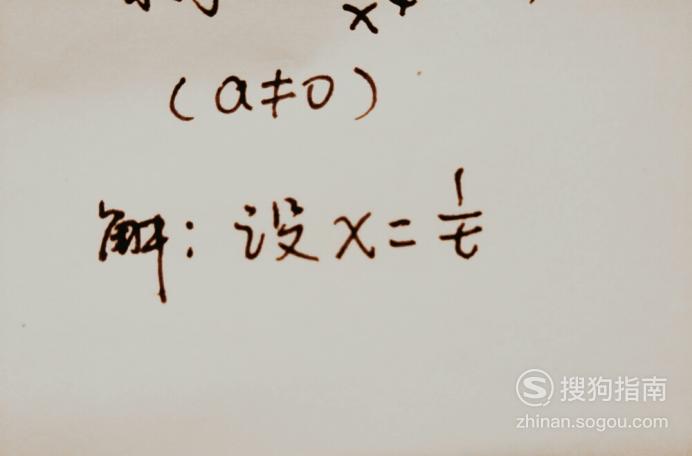 x⁴
(a≠0)
解：设x=1/t
搜狗指南
zhinan.sogou.com